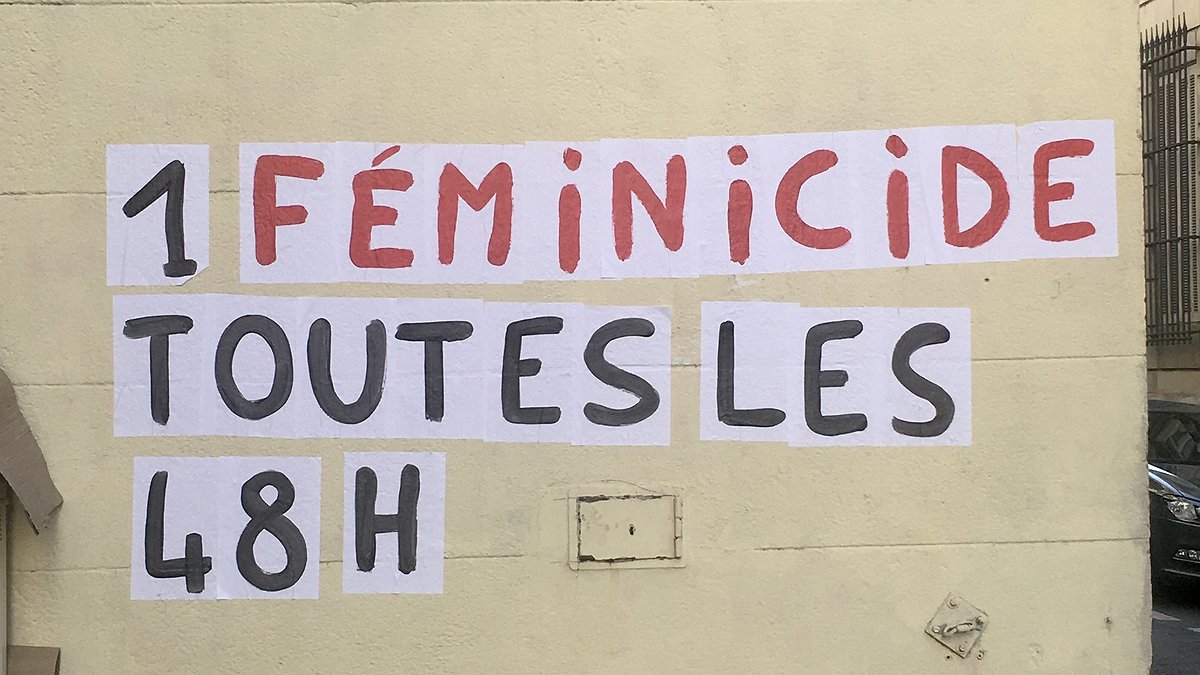 1 FÉMiNiCiDE
TOUTES LES
48H